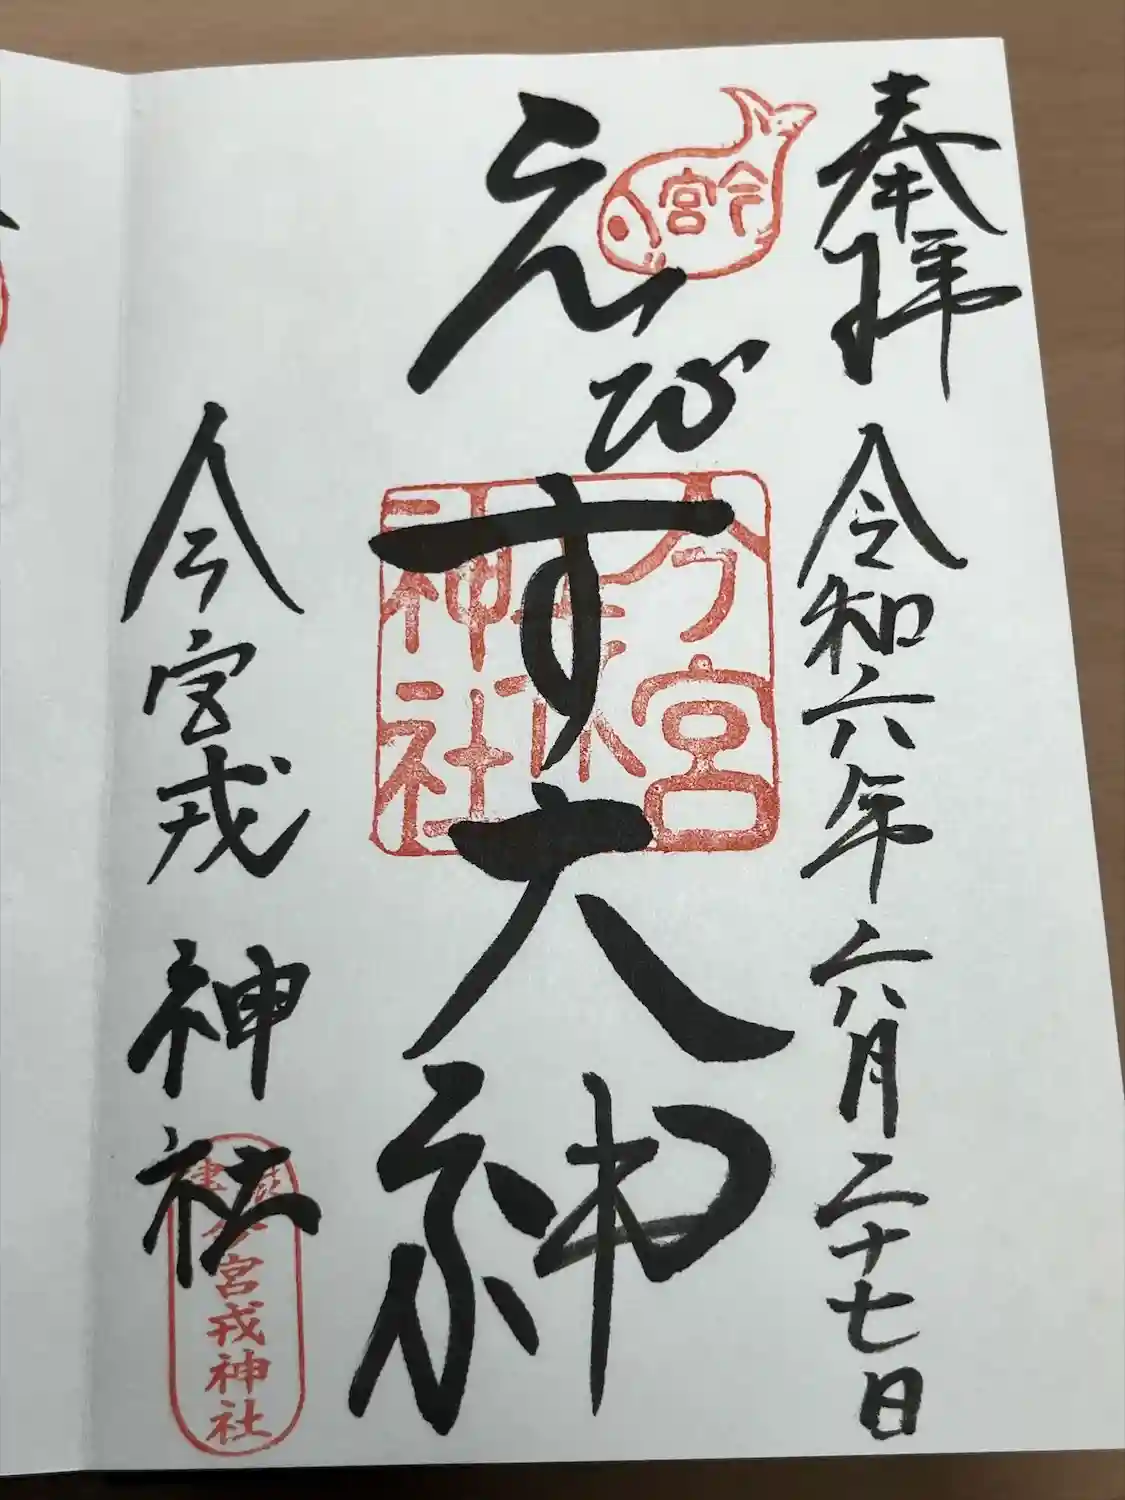 奉拝
令和六年六月二十七日
今宮
えびす大神
今宮
神社
今宮戎神社
今宮戎神社